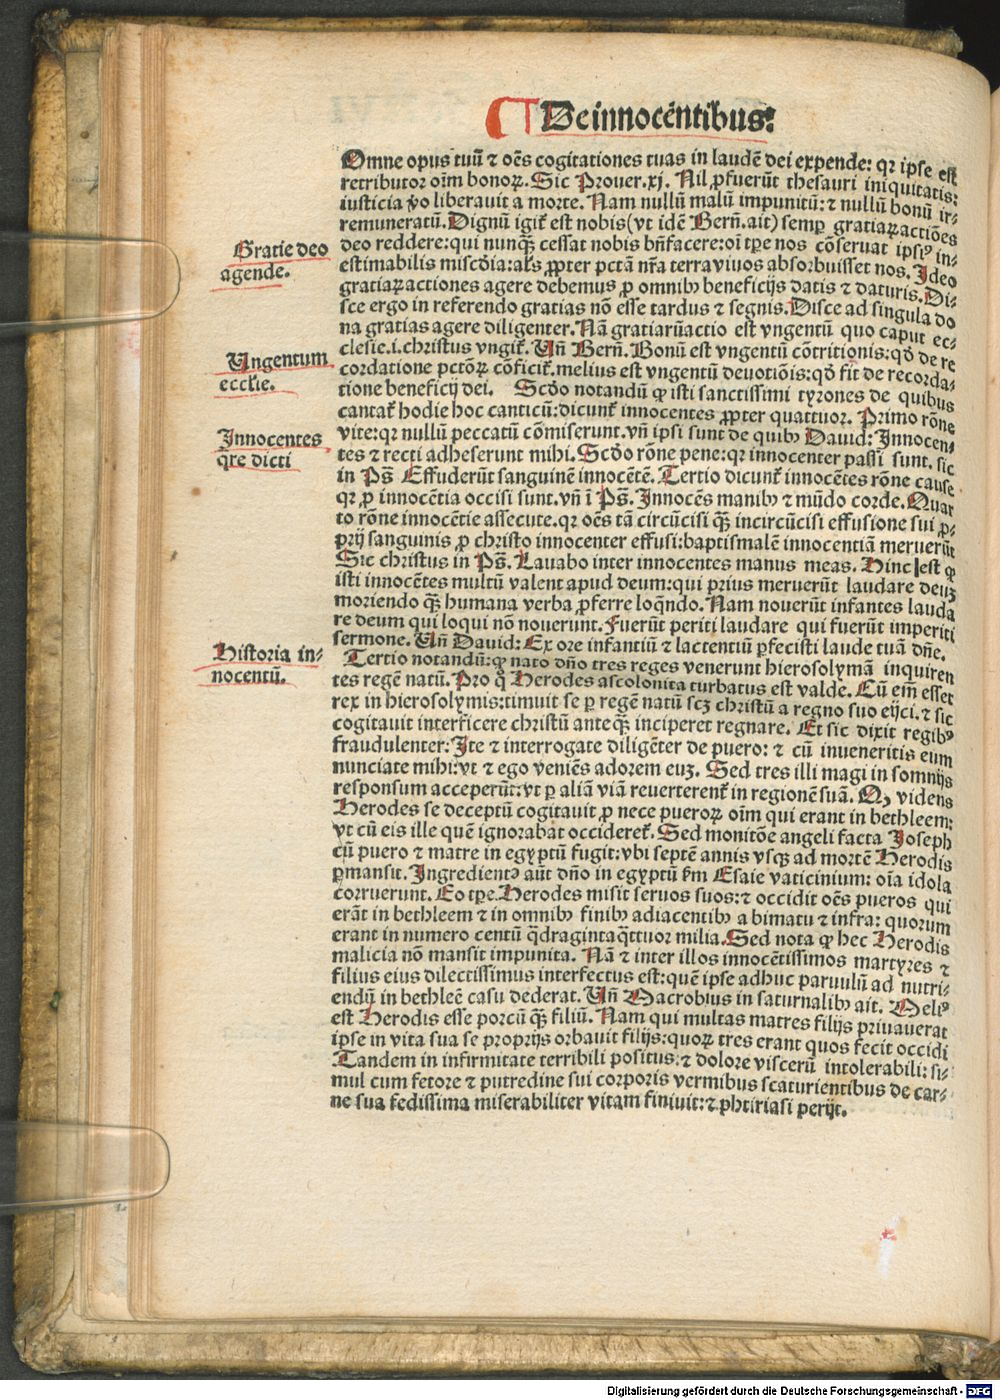 ¶ De innocētibus.
Omne opus tuū ⁊ oēs cogitationes tuas in laudē dei expende: qꝛ ipse est
retributor oīm bonoꝝ. Sic Prouer.xj. Nil ꝓfuerūt thesauri iniquitatis:
iusticia ꝟo liberauit a morte. Nam nullū malū impunitū: ⁊ nullū bonū ir⸗
remuneratū. Dignū igit̄ est nobis (vt idē Berñ. ait) semꝑ gratiaꝝ actiōes
Gratie deo
agende.
deo reddere: qui nunqꝫ cessat nobis bn̄facere: oī tꝑe nos cōseruat ipsiꝰ in⸗
estimabilis miscďia: als ꝓpter pctā nr̄a terra viuos absorbuisset nos. Ideo
gratiaꝝ actiones agere debemus ꝓ omnibꝰ beneficijs datis ⁊ daturis. Di⸗
sce ergo in referendo gratias nō esse tardus ⁊ segnis. Disce ad singula do
na gratias agere diligenter. Nā gratiarū actio est vngentū quo caput ec⸗
Ungentum
eccłie.
clesie .i. christus vngit̄. Uñ Berñ. Bonū est vngentū cōtritionis: qď de re
cordatione pctōꝝ cōficit̄. melius est vngentū deuotiōis: qď fit de recorda⸗
tione beneficij dei. Scďo notandū ꝙ isti sanctissimi tyrones de quibus
cantat̄ hodie hoc canticū: dicunt̄ innocentes ꝓpter quattuor. Primo rōne
Innocentes
q̄re dicti
vite: qꝛ nullū peccatū cōmiserunt. vñ ipsi sunt de quibꝰ Dauid: Innocen⸗
tes ⁊ recti adheserunt mihi. Scďo rōne pene: qꝛ innocenter passi sunt. sic
in Ps̄. Effuderūt sanguinē innocētē. Tertio dicunt̄ innocētes rōne cause
qꝛ ꝓ innocētia occisi sunt. vñ ī Ps̄. Innocēs manibꝰ ⁊ mūdo corde. Quar
to rōne innocētie assecute. qꝛ oēs tā circūcisi qꝫ incircūcisi effusione sui ꝓ⸗
prij sanguinis ꝓ christo innocenter effusi: baptismalē innocentiā meruerūt
Sic christus in Ps̄. Lauabo inter innocentes manus meas. Hinc est ꝙ
isti innocētes multū valent apud deum: qui prius meruerūt laudare deuꝫ
moriendo qꝫ humana verba ꝓferre loq̄ndo. Nam nouerūt infantes lauda
re deum qui loqui nō nouerunt. Fuerūt periti laudare qui fuerūt imperiti
sermone. Uñ Dauid: Ex ore infantiū ⁊ lactentiū ꝑfecisti laude tuā dn̄e.
Historia in⸗
nocentū.
Tertio notandū: ꝙ nato dn̄o tres reges venerunt hierosolymā inquiren
tes regē natū. Pro quo Herodes ascolonita turbatus est valde. Cū em̄ esset
rex in hierosolymis: timuit se ꝑ regē natū scꝫ christū a regno suo eijci. ⁊ sic
cogitauit interficere christū anteqꝫ inciperet regnare. Et sic dixit regibꝰ
fraudulenter: Ite ⁊ interrogate diligēter de puero: ⁊ cū inueneritis eum
nunciate mihi: vt ⁊ ego veniēs adorem euꝫ. Sed tres illi magi in somnijs
responsum acceperūt: vt ꝑ aliā viā reuerterent̄ in regionē suā. Qď videns
Herodes se deceptū cogitauit ꝓ nece pueroꝝ oīm qui erant in bethleem:
vt cū eis ille quē ignorabat occideret̄. Sed monitōe angeli facta Joseph
cū puero ⁊ matre in egyptū fugit: vbi septē annis vsqꝫ ad mortē Herodis
ꝑmansit. Ingredientꝰ aūt dn̄o in egyptū ẜm Esaie vaticinium: oīa idola
corruerunt. Eo tꝑe Herodes misit seruos suos: ⁊ occidit oēs pueros qui
erāt in bethleem ⁊ in omnibꝰ finibꝰ adiacentibꝰ a bimatu ⁊ infra: quorum
erant in numero centū q̄draginta q̄ttuor milia. Sed nota ꝙ hec Herodis
malicia nō mansit impunita. Nā ⁊ inter illos innocētissimos martyres ⁊
filius eius dilectissimus interfectus est: quē ipse adhuc paruulū ad nutri⸗
endū in bethleē casu dederat. Uñ Macrobius in saturnalibꝰ ait. Meliꝰ
est Herodis esse porcū qꝫ filiū. Nam qui multas matres filijs priuauerat
ipse in vita sua se proprijs orbauit filijs: quoꝝ tres erant quos fecit occidi
Tandem in infirmitate terribili positus: ⁊ dolore viscerū intolerabili: si⸗
mul cum fetore ⁊ putredine sui corporis vermibus scaturientibus de car⸗
ne sua fedissima miserabiliter vitam finiuit: ⁊ phtiriasi perijt.
Digitalisierung gefördert durch die Deutsche Forschungsgemeinschaft - DFG